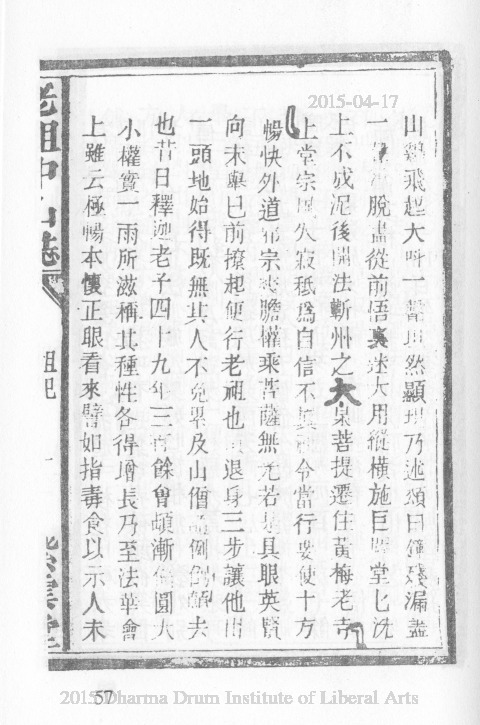 2015-04-17
山鷄飛起大呼一聲現然顯現乃述頌曰鐘殘漏盡
一脫盡從前悟裏迷大用縱橫施巨堂七洗
上不成泥後開法蘄州之大泉菩提遷住黃梅老寺
上堂宗風久寂秪爲自信不眞令當行要使十方
暢快外道邪宗喪膽權乘菩薩無光若是具眼英賢
向未舉已前撩起便行老祖也退身三步讓他出
一頭地始得既無其人不免累及山僧倒去
也昔日釋迦老子四十九年三百餘會頓漸偏圓大
小權實一雨所滋稱其種性各得增長乃至法華會
上雖云極暢本懷正眼看來譬如指毒食以示人未
老祖中山志
祖記
紫雲堂
57
2015 Dharma Drum Institute of Liberal Arts